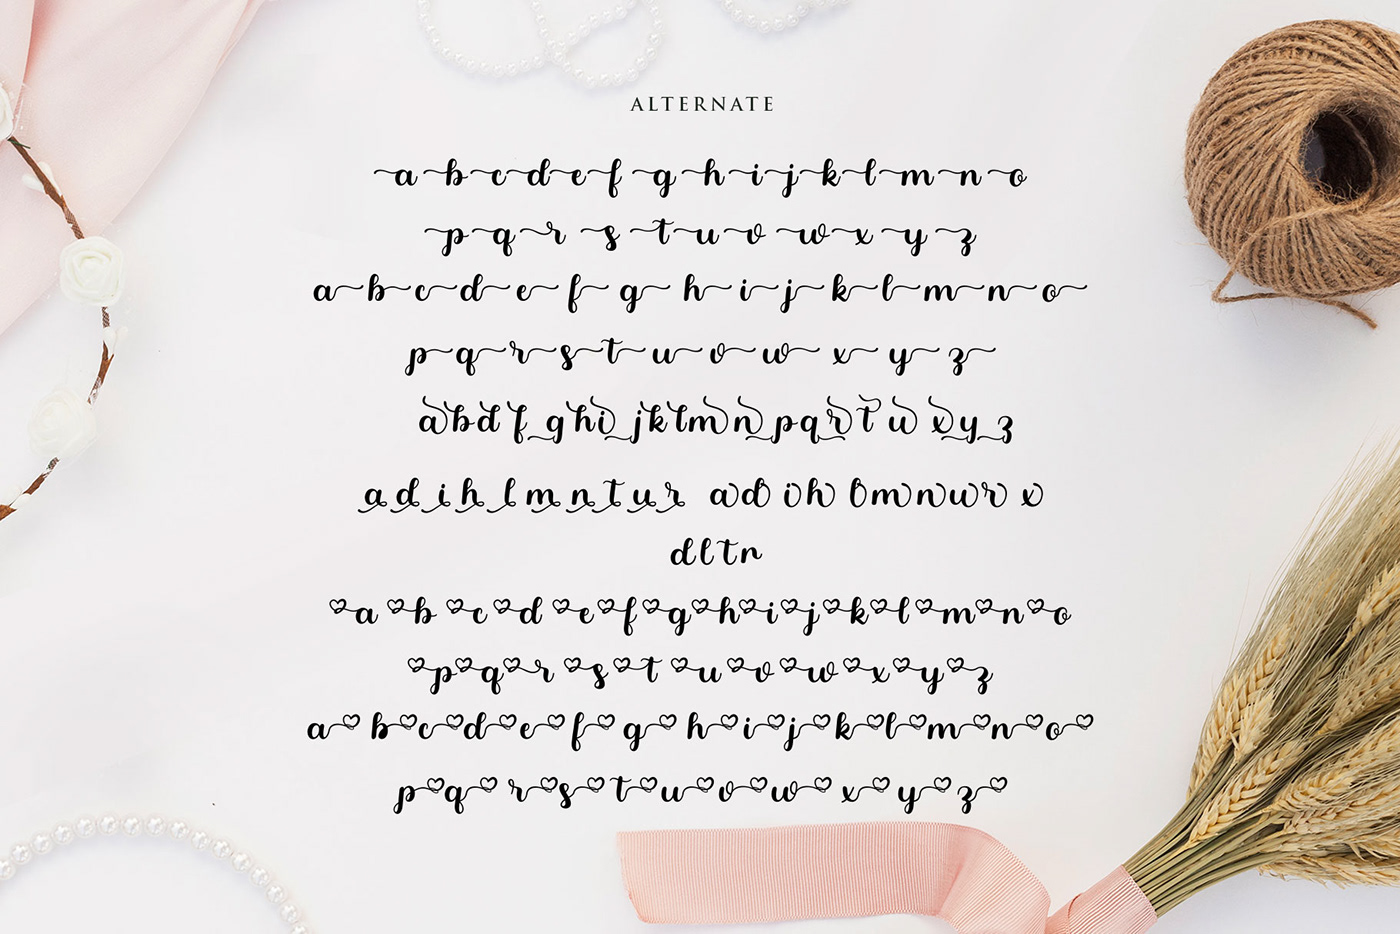 ALTERNATE
a b c d e f g h i j k l m n o
p q r s t u v w x y z
a b c d e f g h i j k l m n o
p q r s t u v w x y z
a b d f g h i j k l m n p q r t u x y z
a d i h l m n t u r a d i h l m n u r x
d l t r
a b c d e f g h i j k l m n o
p q r s t u v w x y z
a b c d e f g h i j k l m n o
p q r s t u v w x y z